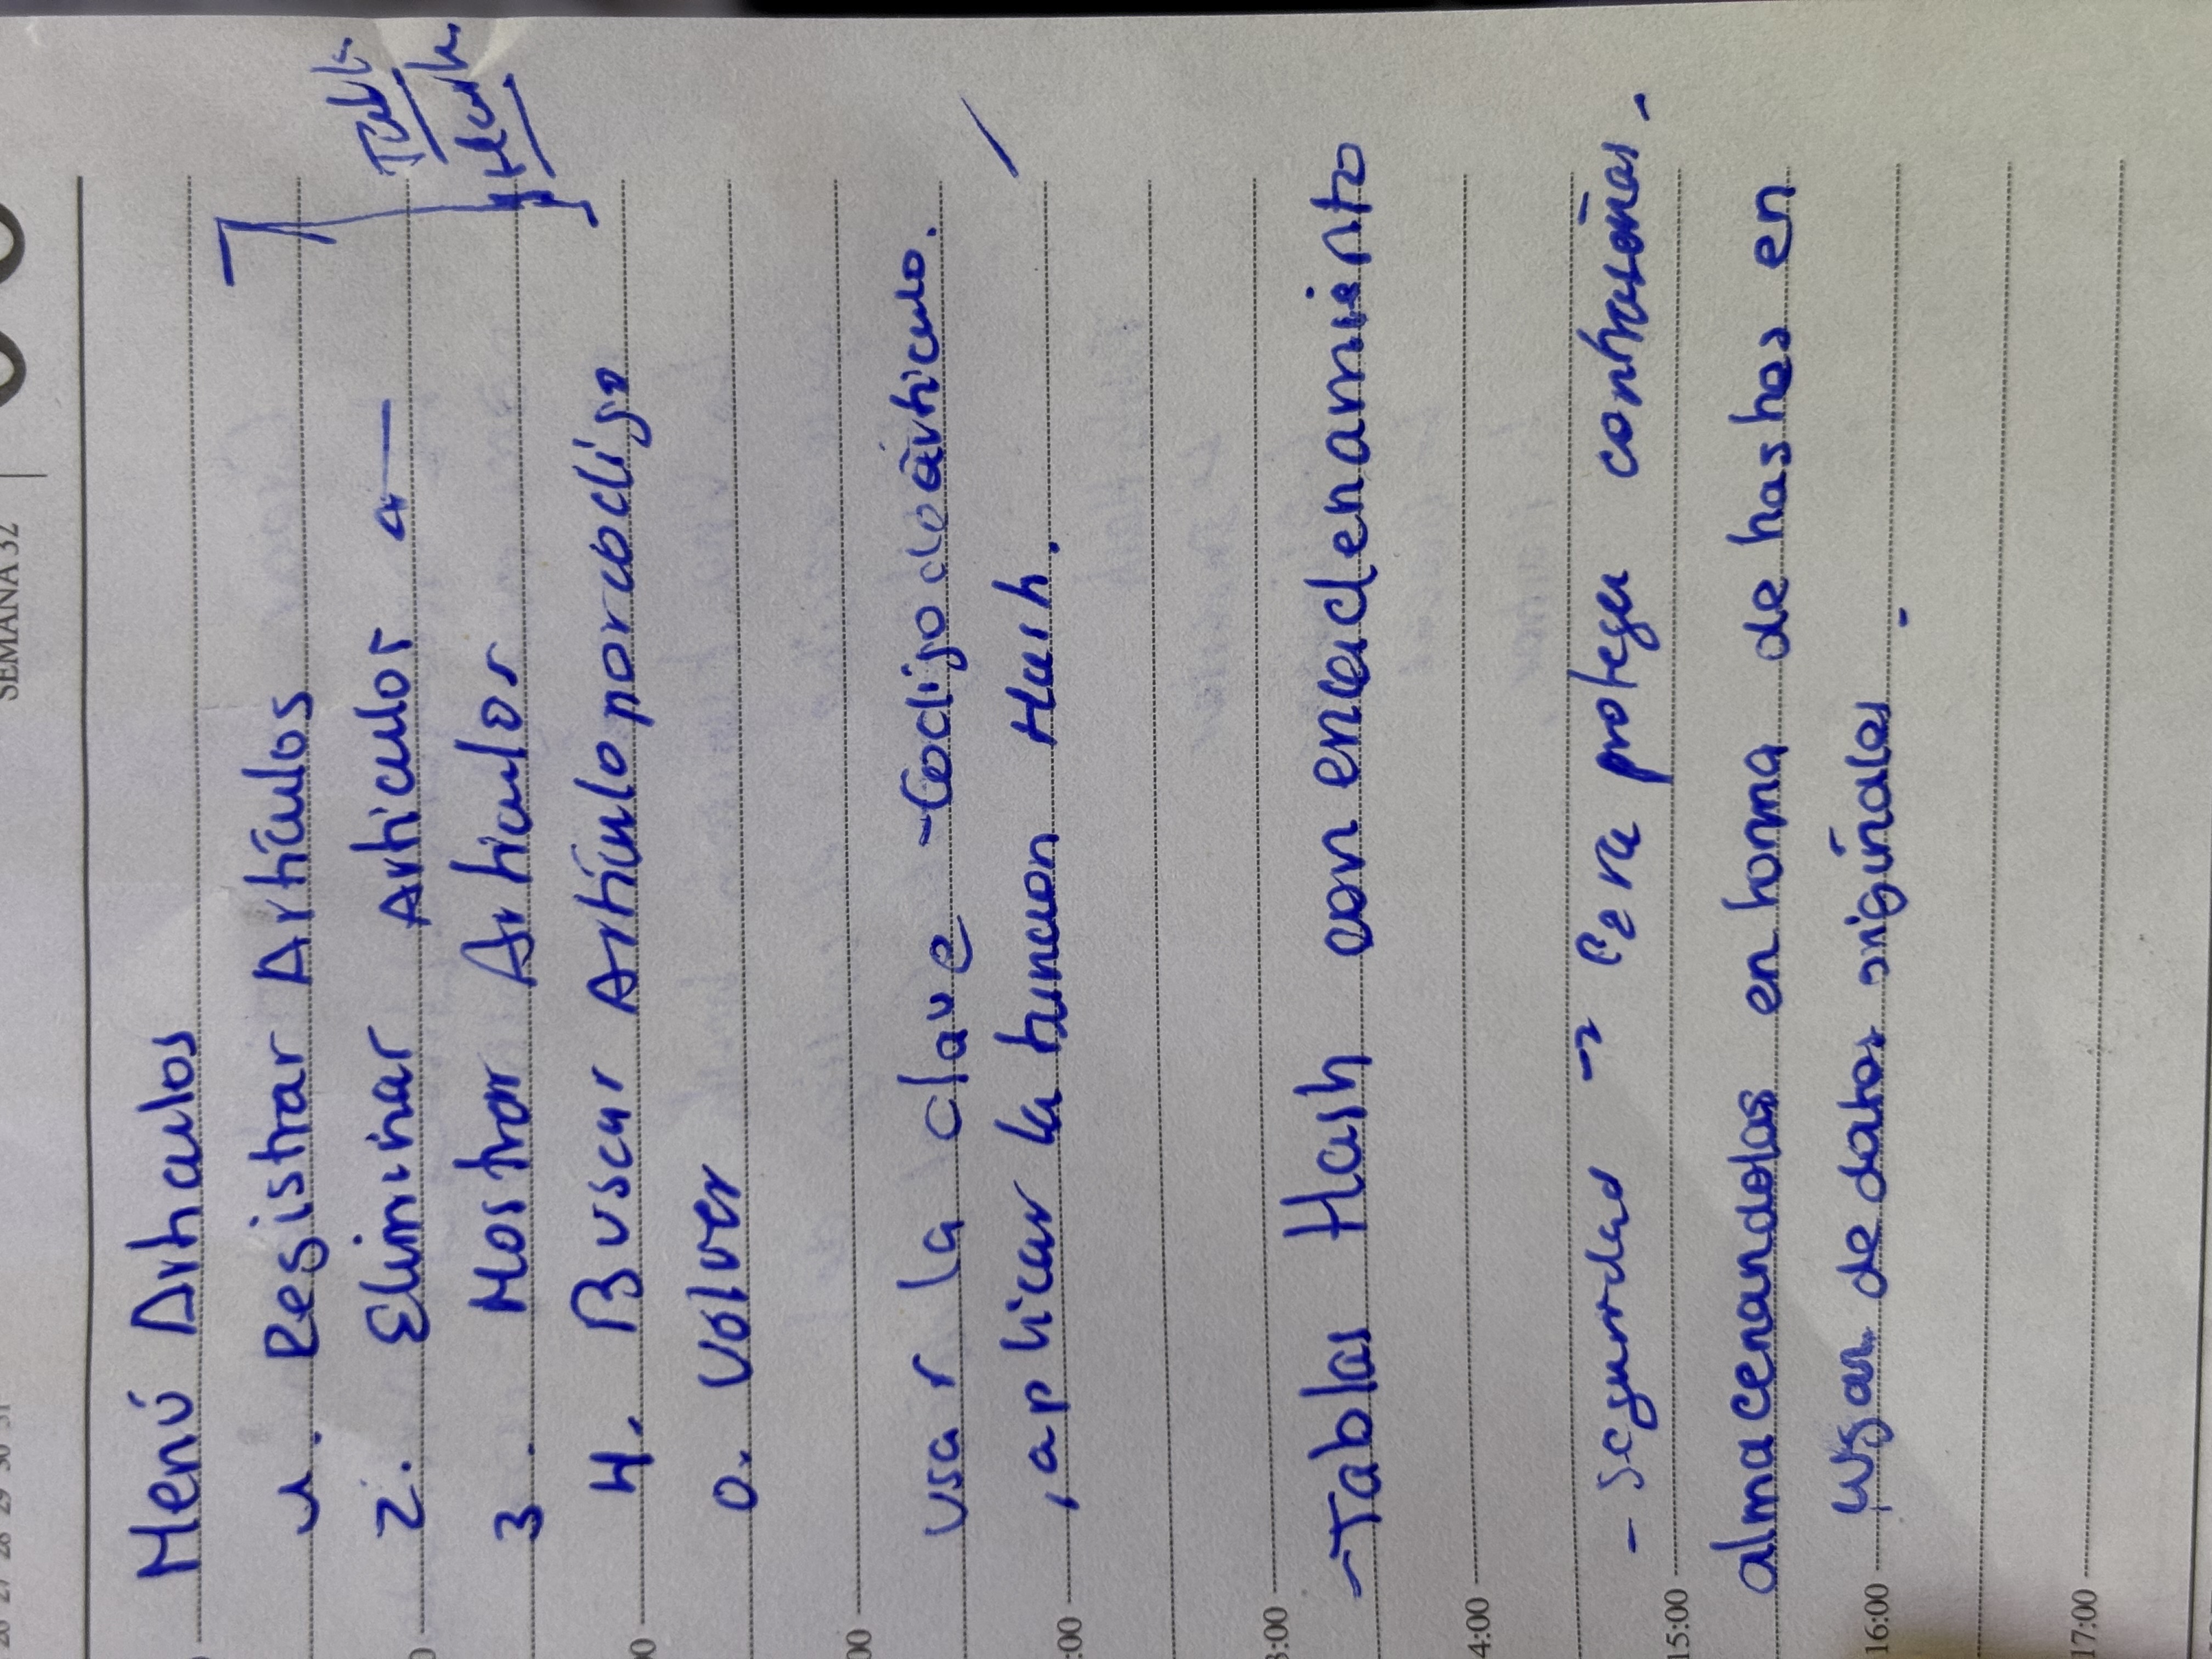 26 27 28 29 30 31
SEMANA 32
Menú Articulos
1. Registrar Artículos
2. Eliminar Articulos ←
3. Mostrar Articulos
4. Buscar Artículo por codigo
0. Volver
Tabla
Hash
usar la clave - Codigo de articulo.
, aplicar la funcion Hash.
3:00
- Tablas Hash con encadenamiento
4:00
- Seguridad → Para proteger contraseñas.
15:00
almacenandolas en forma de hashes en
16:00
lugar de datos originales.
17:00